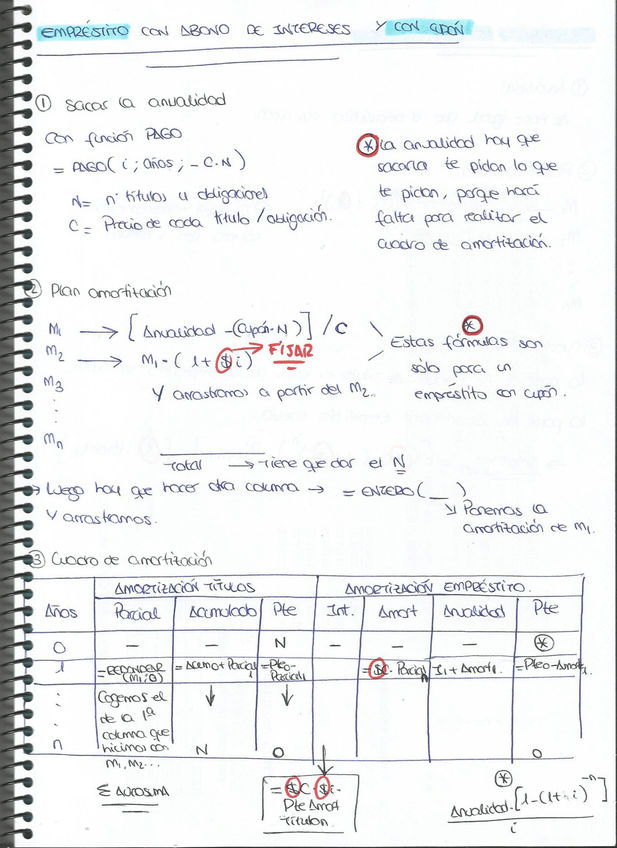 EMPRÉSTITO CON ABONO DE INTERESES Y CON CUPÓN
① Sacar la anualidad
Con función PAGO
= PAGO( i ; años ; - C·N )
N= nº títulos u obligaciones
C = Precio de cada título / obligación.
* La anualidad hay que
sacarla te pidan lo que
te pidan, porque hará
falta para realizar el
cuadro de amortización.
② Plan amortización
M1 → [Anualidad -(Cupón·N)] / C
M2 → M1·(1+$i) → FIJAR
M3
Y arrastramos a partir del M2..
* Estas fórmulas son
sólo para un
empréstito con cupón.
:
:
Mn
Total → Tiene que dar el N
→ Luego hay que hacer otra columna → = ENTERO( __ )
Y arrastramos.
↘ Ponemos la
amortización de M1.
③ Cuadro de amortización
AMORTIZACIÓN TÍTULOS AMORTIZACIÓN EMPRÉSTITO.
Años Parcial Acumulado Pte Int. Amort Anualidad Pte
0 — — N — — — *
1 =REDONDEAR (M1;0) =Acumo+Parcial1 =Pteo-Parcial1 =$C·Parcial1 I1+Amort1 =Pteo-Amort1.
: Cogemos el ↓ ↓
: de la 1ª
: columna que
n hicimos con N 0 0
M1, M2...
Σ AUTOSUMA
= $C·$i·
Pte Amort
Títulos
* Anualidad·[1-(1+i)^-n]
i